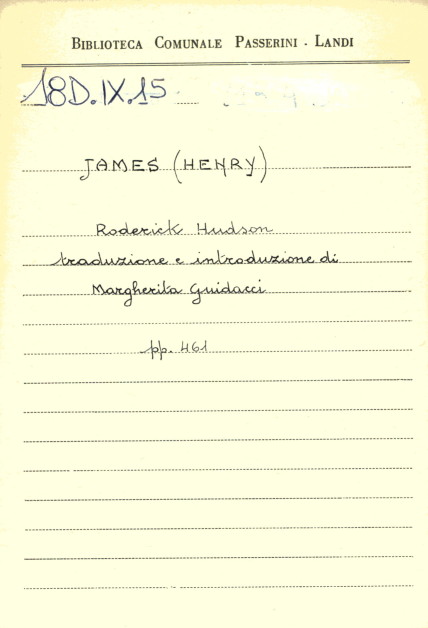 BIBLIOTECA COMUNALE PASSERINI - LANDI
18D.IX.15
JAMES (HENRY)
Roderick Hudson
traduzione e introduzione di
Margherita Guidacci
pp. 461